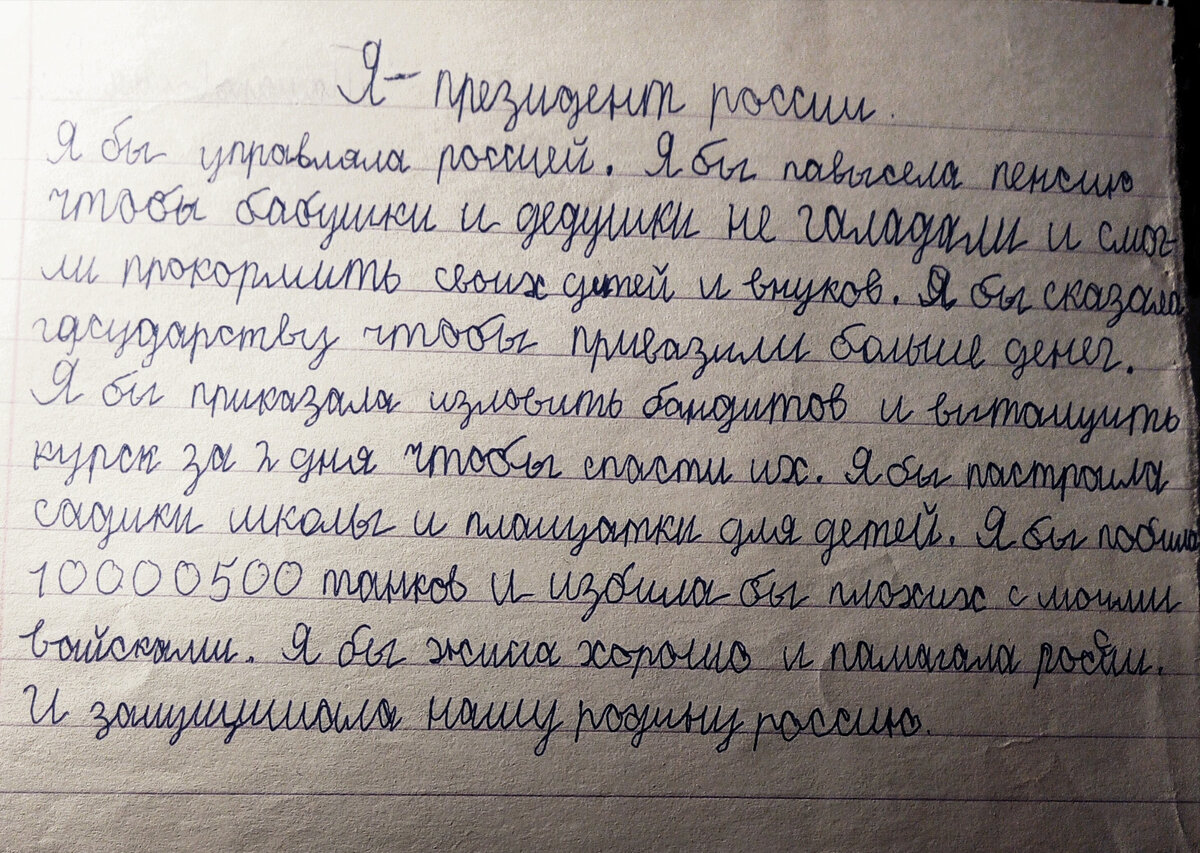 Я - президент россии.
Я бы управляла россией. Я бы павысела пенсию
чтобы бабушки и дедушки не галадали и смог-
ли прокормить своих детей и внуков. Я бы сказала
гасударству чтобы привазили больше денег.
Я бы приказала изловить бандитов и витащить
курск за 2 дня чтобы спасти их. Я бы пастроила
садики школы и плащатки для детей. Я бы побила
10000500 танков и избила бы плохих с моими
вайсками. Я бы жила хорошо и памагала россии.
И защищала нашу родину россию.